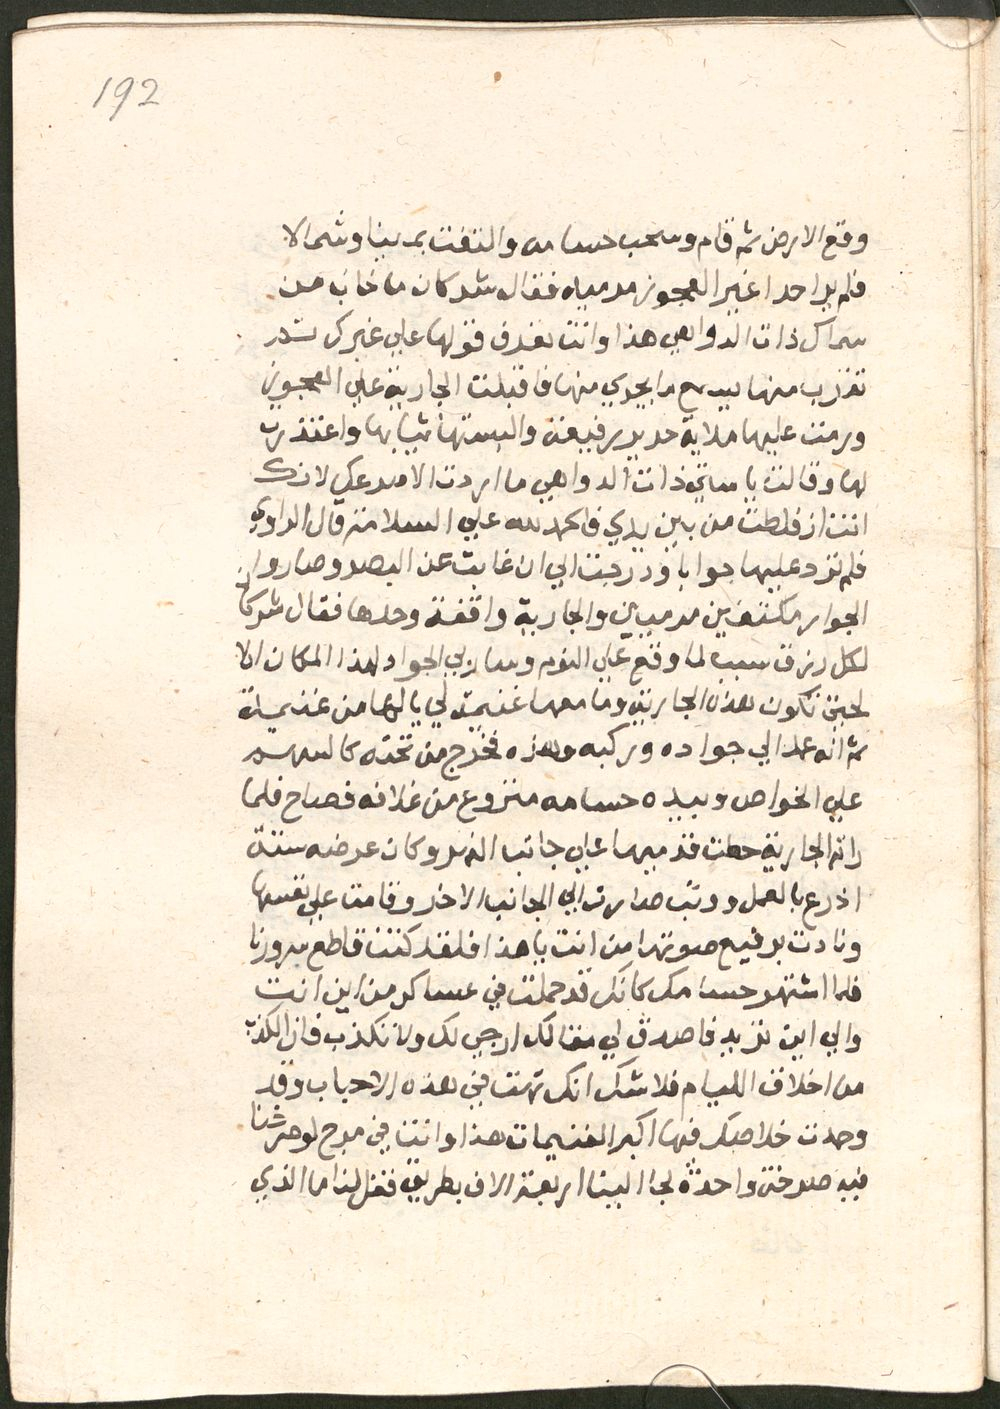 192
وقع الارض ثم قام وسحب حسامه والتفت يمينا وشمالا
فلم ير احدا غير العجوز مرميه فقال شركان ما خاب من
سماكي ذات الدواهي هذا وانت تعرف قولها علي غيرك
تقرب منها ليسمع ما يجري منها فاقبلت الجارية علي العجوز
ورمت عليها ملاية حرير رفيعه والبستها ثيابها واعتذرت
لها وقالت يا ستي ذات الدواهي ما اردت الا صرعك لانك
انت انفلطت من بين يدي فالحمد لله علي السلامة قال الراوي
فلم ترد عليها جوابا ودرجت الي ان غابت عن البصر وصاروا
الجوار مكتفين مرميين والجارية واقفة وحدها فقال شركان
لكل رزق سبب لما وقع علي النوم وسار بي الجواد لهذا المكان الا
لحيث تكون هذه الجارية وما معها غنيمة لي يا لها من غنيمة
ثم انه عمد الي جواده وركبه وهزه فخرج من تحته كالسهم
علي الخواص وبيده حسامه منزوع من غلافه فصاح فلما
راته الجارية حطت قدميها علي جانب النهر وكان عرضه ستة
اذرع بالعمل ووثبت صارت الي الجانب الاخر وقامت علي نفسها
ونادت برفيع صوتها من انت يا هذا فلقد كنت قاطع سرورنا
فلما اشتهر حسامك كانك قد حملت في عساكر من اين انت
والي اين تريد فاصدق لي مقالك ارجي لك ولا تكذب فان الكذب
من اخلاق الليام فلا شك انك تهت في هذه الاحباب وقد
وجدت خلاصك فيها اكبر الغنيمات هذا وانت في مرج لو صرخنا
فيه صرخة واحدة لجا الينا اربعة الاف بطريق فقل لنا ما الذي